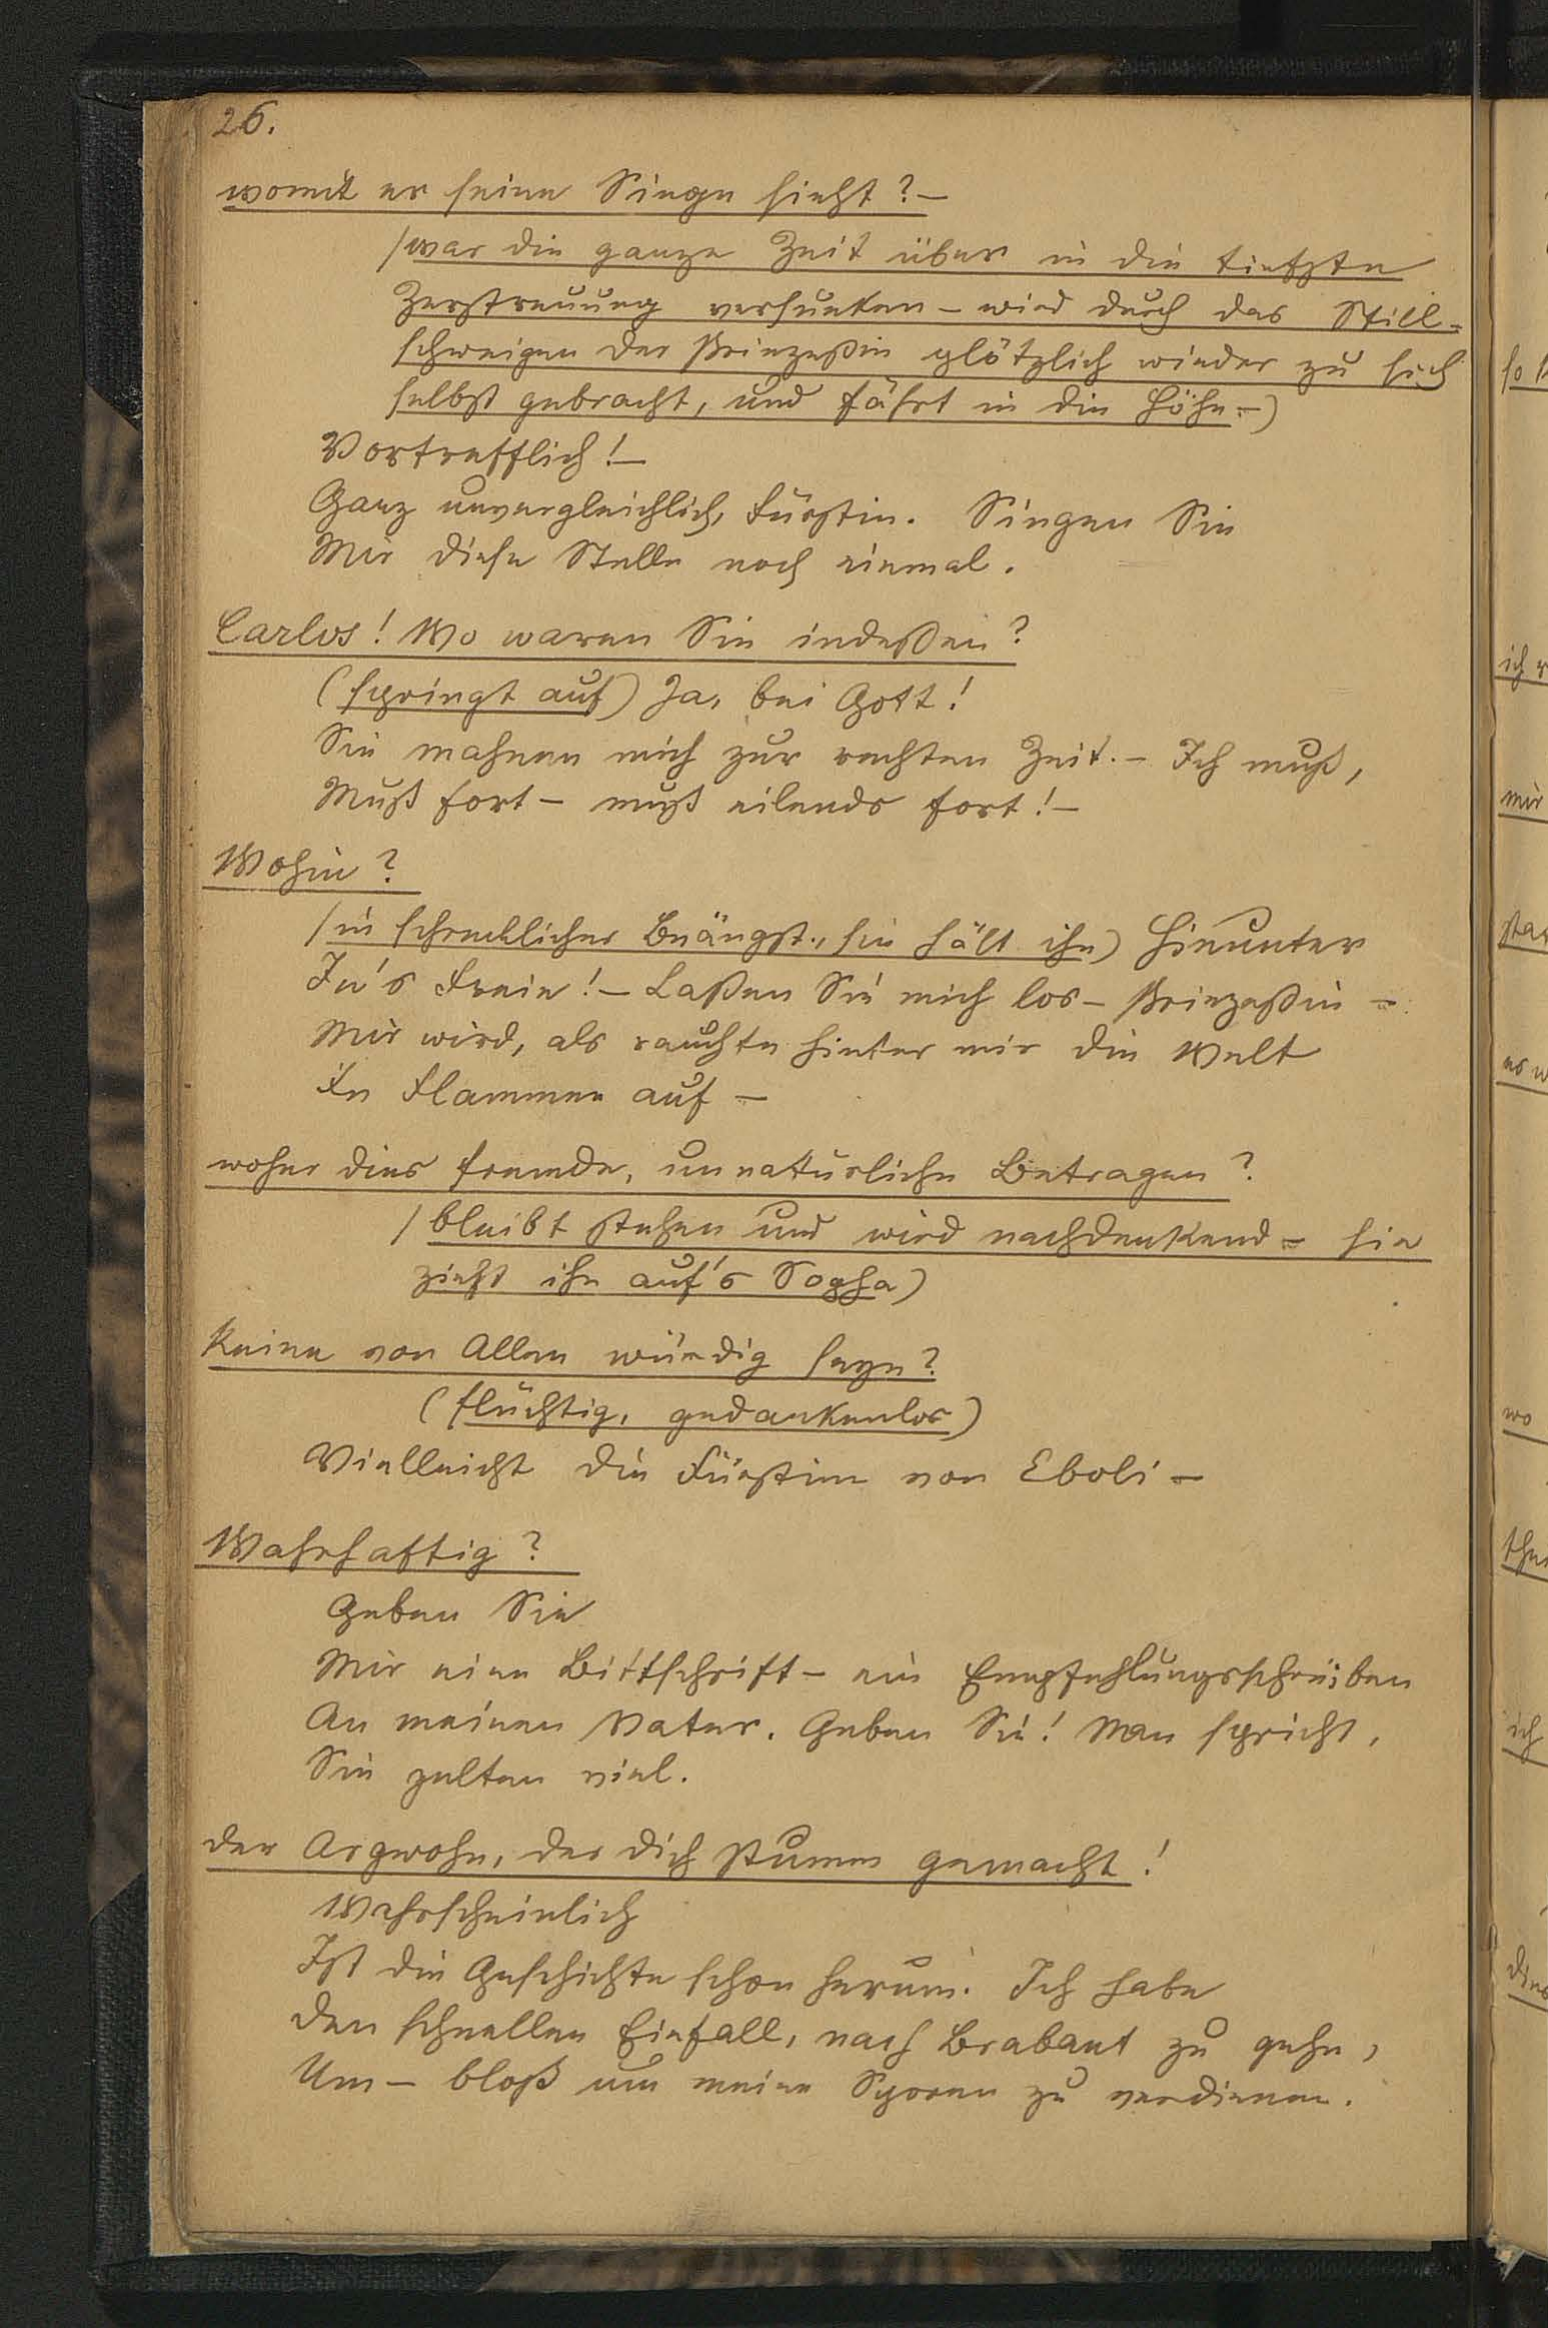 26.
womit er seine Siege sieht? –
/war die ganze Zeit über in die tiefste
Zerstreuung versunken – wird durch das Still-
schweigen der Prinzeßin plötzlich wieder zu sich
selbst gebracht, und fährt in die Höhe –)
Vortrefflich! –
Ganz unvergleichlich, Fürstin. Singen Sie
Mir diese Stelle noch einmal.
Carlos! Wo waren Sie indeßen?
(springt auf) Ja, bei Gott!
Sie mahnen mich zur rechten Zeit. – Ich muß,
Muß fort – muß eilends fort! –
Wohin?
/in schrecklicher Beängst., sie hält ihn) Hinunter
In's Freie! – Laßen Sie mich los – Prinzeßin –
Mir wird, als rauchte hinter mir die Welt
In Flammen auf –
woher dies fremde, unnatürliche Betragen?
/bleibt stehen und wird nachdenkend – sie
zieht ihn auf's Sopha)
Keine von Allen würdig seyn?
(flüchtig, gedankenlos)
Vielleicht die Fürstinn von Eboli –
Wahrhaftig?
Geben Sie
Mir eine Bittschrift – ein Empfehlungsschreiben
An meinen Vater. Geben Sie! Man spricht,
Sie gelten viel.
der Argwohn, der dich stumm gemacht!
Wahrscheinlich
Ist die Geschichte schon herum. Ich habe
den schnellen Einfall, nach Brabant zu gehn,
Um – bloß um meine Sporen zu verdienen.
so
ich
mir
es w
wo
ich